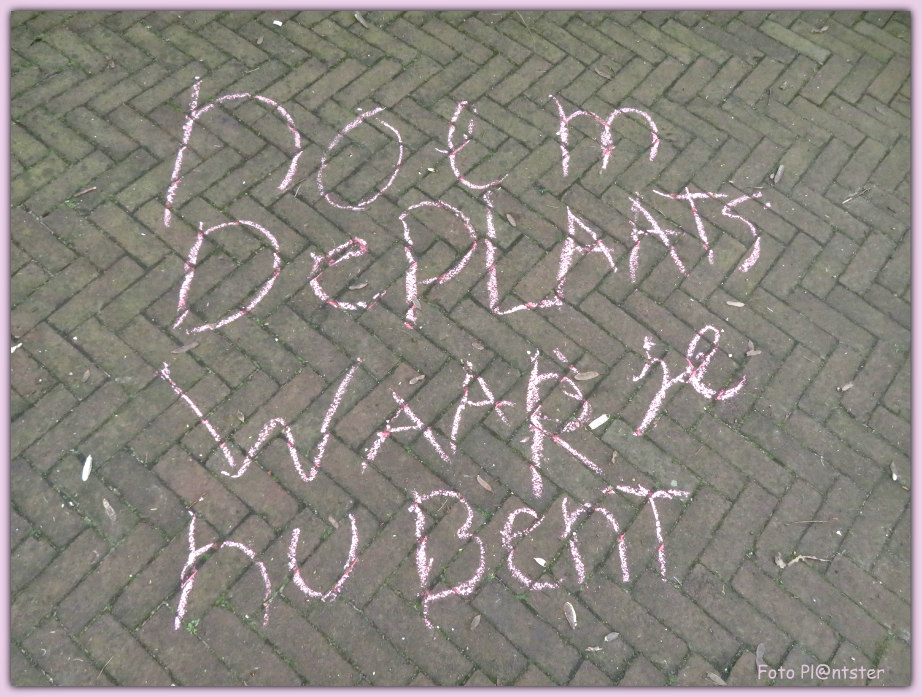 noem
De PLAATS
WAAR je
nu BenT
Foto Pl@ntster